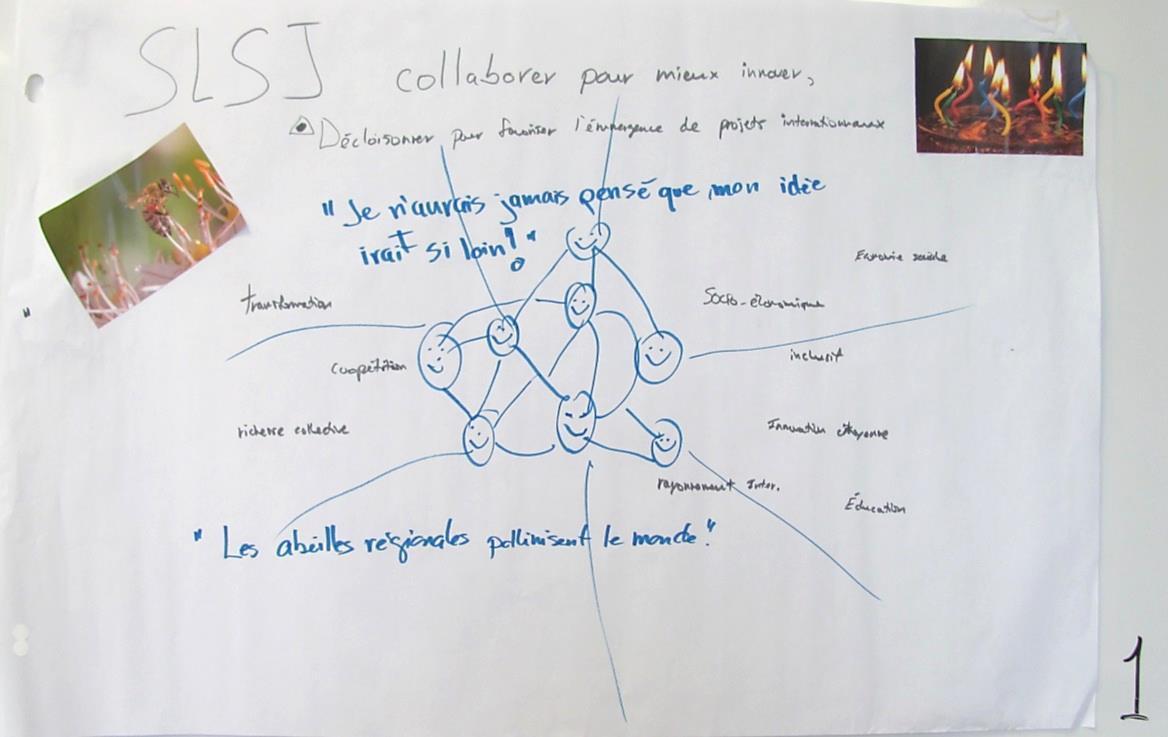 SLSJ collaborer pour mieux innover,
Décloisonner pour favoriser l'émergence de projets internationnaux
"Je n'aurais jamais pensé que mon idée
irait si loin!"
Économie sociale
transformation
Socio-économique
inclusif
coopétition
richesse collective
Innovation citoyenne
rayonnement Inter.
Éducation
"Les abeilles régionales pollinisent le monde."
1